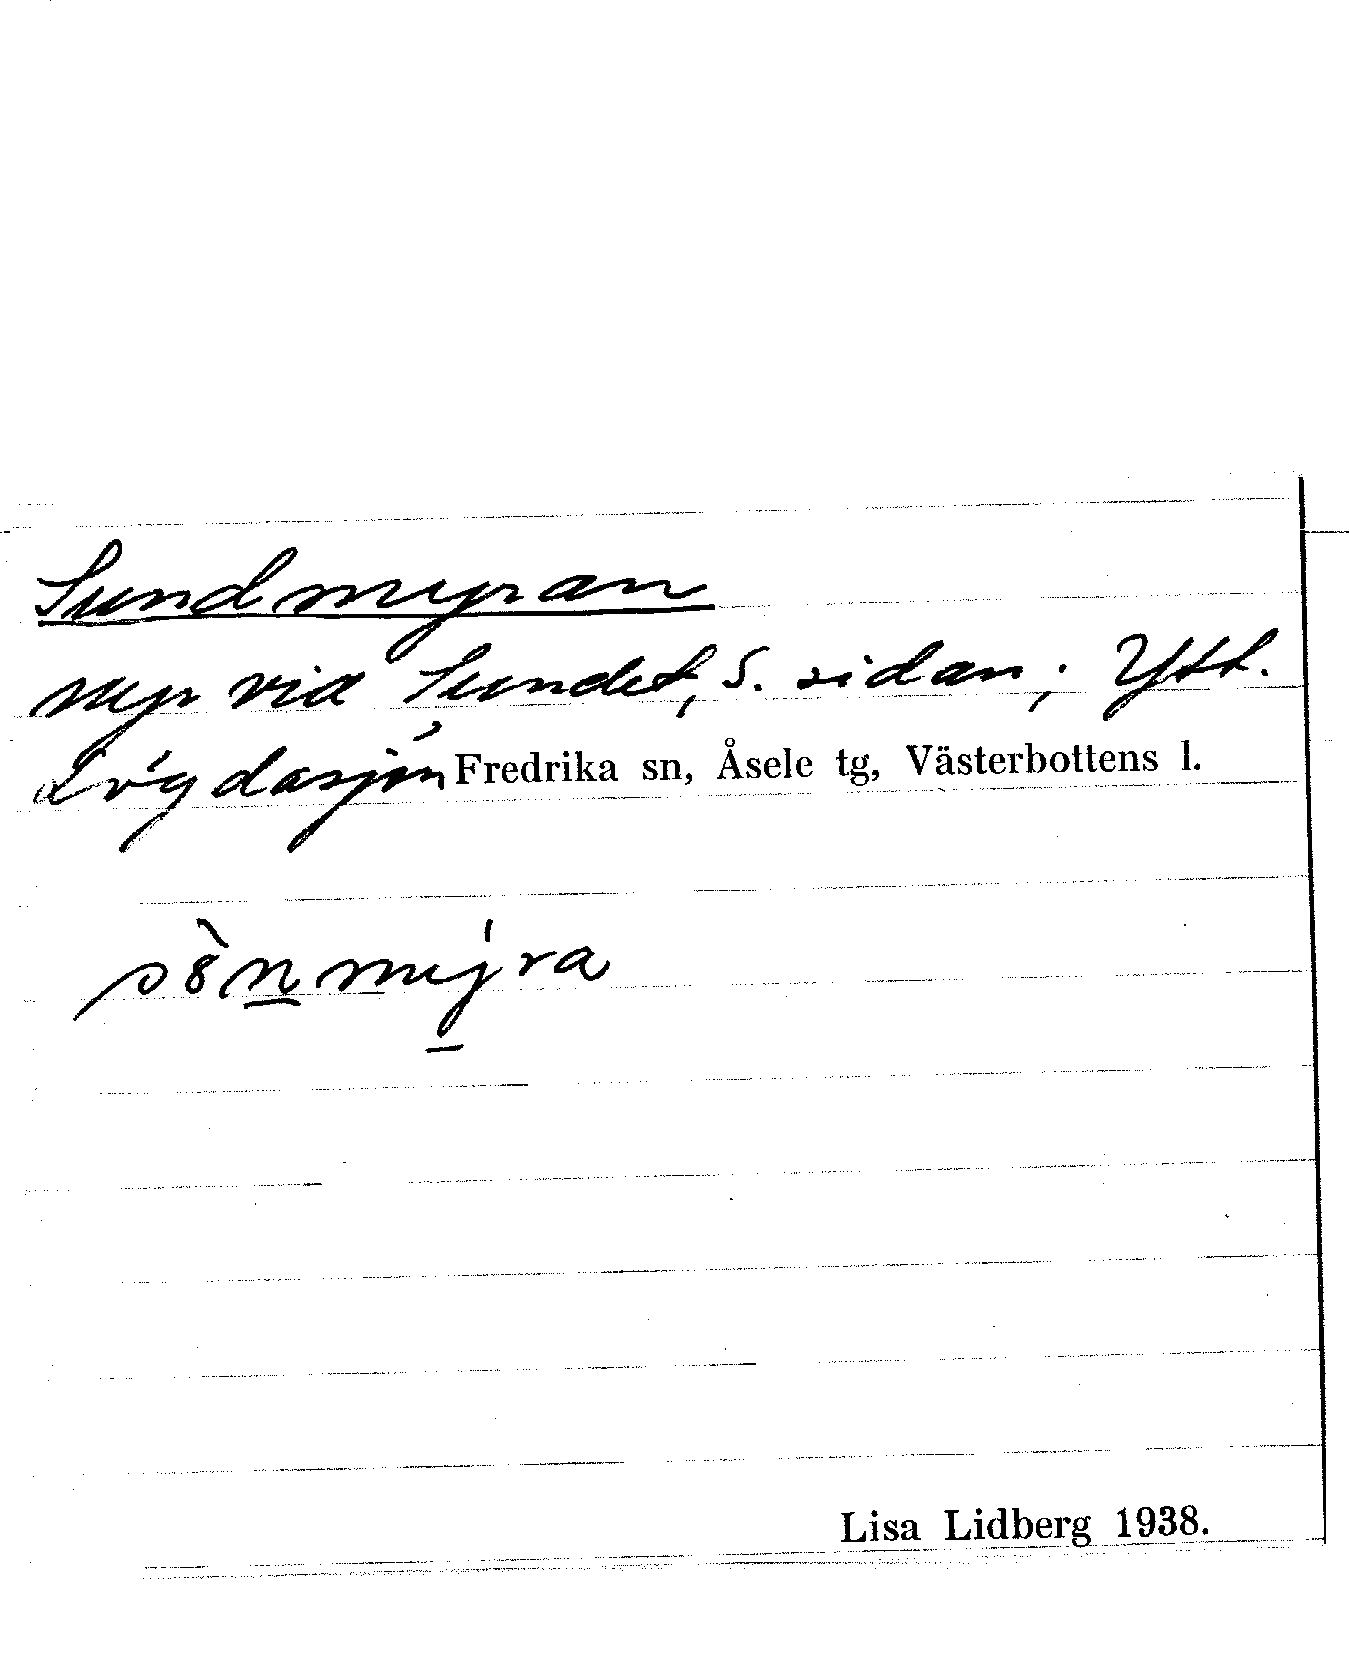 Sundmyran
myr vid Sundet, S. sidan; Ytt.
Lögdasjön Fredrika sn, Åsele tg, Västerbottens l.
Lisa Lidberg 1938.